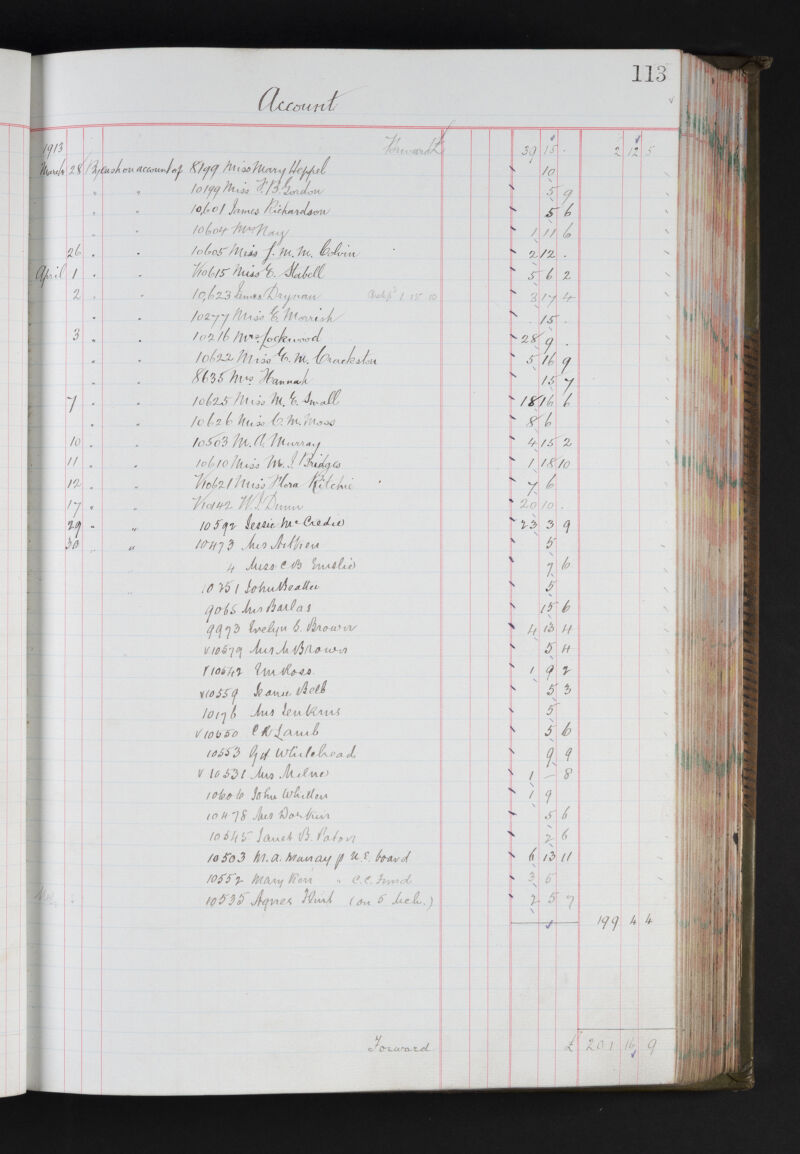 113
Account
1913 Forward 39 15 - 2 12 5
March 28 By cash on account of 8799 Miss Mary Heppel 10
" " 10199 Miss H B Gordon 5 9
" " 10,601 James Richardson 5 6
" " 10604 Mrs Nay 1 11 6
26 " " 10605 Miss J. M. M. Colvin 2 12 -
April 1 " " V10615 Miss E. Stabell 5 6 2
2 " " 10,623 James Drynan 1 15 10 3 17 4
" " 10277 Miss E. Morrish 15 -
3 " " 10216 Mrs Lockwood 28 9 -
" " 10622 Miss E. M. Crackston 5 16 9
" " 8635 Mrs Hannah 15 7
7 " " 10625 Miss M. E. Swall 18 16 6
" " 10626 Miss C. M. Moss 8 6
10 " " 10503 M. A. Murray 4 15 2
11 " " 10610 Miss M. J. Bridges 1 18 10
12 " " V10621 Miss Flora Ritchie 7 6
17 " " W. J. Dunn 20 10 -
29 " " 10592 Jessie McCredie 23 3 9
30 " " 10473 Mrs Aitken 5
4 Miss C B Emslie 7 6
10251 John Beattie 5
9065 Mrs Barlas 15 6
9973 Evelyn E. Brown 4 13 4
V10579 Mrs M Brown 5 4
V10542 Ross 1 9 2
V10559 Jeanie Bell 5 3
10176 Mrs Jenkins 5
V10650 C R Lamb 5 6
10553 Whitehead 9 9
V10531 Mrs Milne 1 - 8
10606 John Whitten 1 9
10478 Mrs 5 6
10545 Janet B. Paton 2 6
10503 M. A. Murray p U.S. board 6 13 11
10552 Mary Kerr " C.C. Fund 3 6
10535 Agnes Flint (on 5 ) 2 5 7
199 4 4
Forward £ 201 16 9